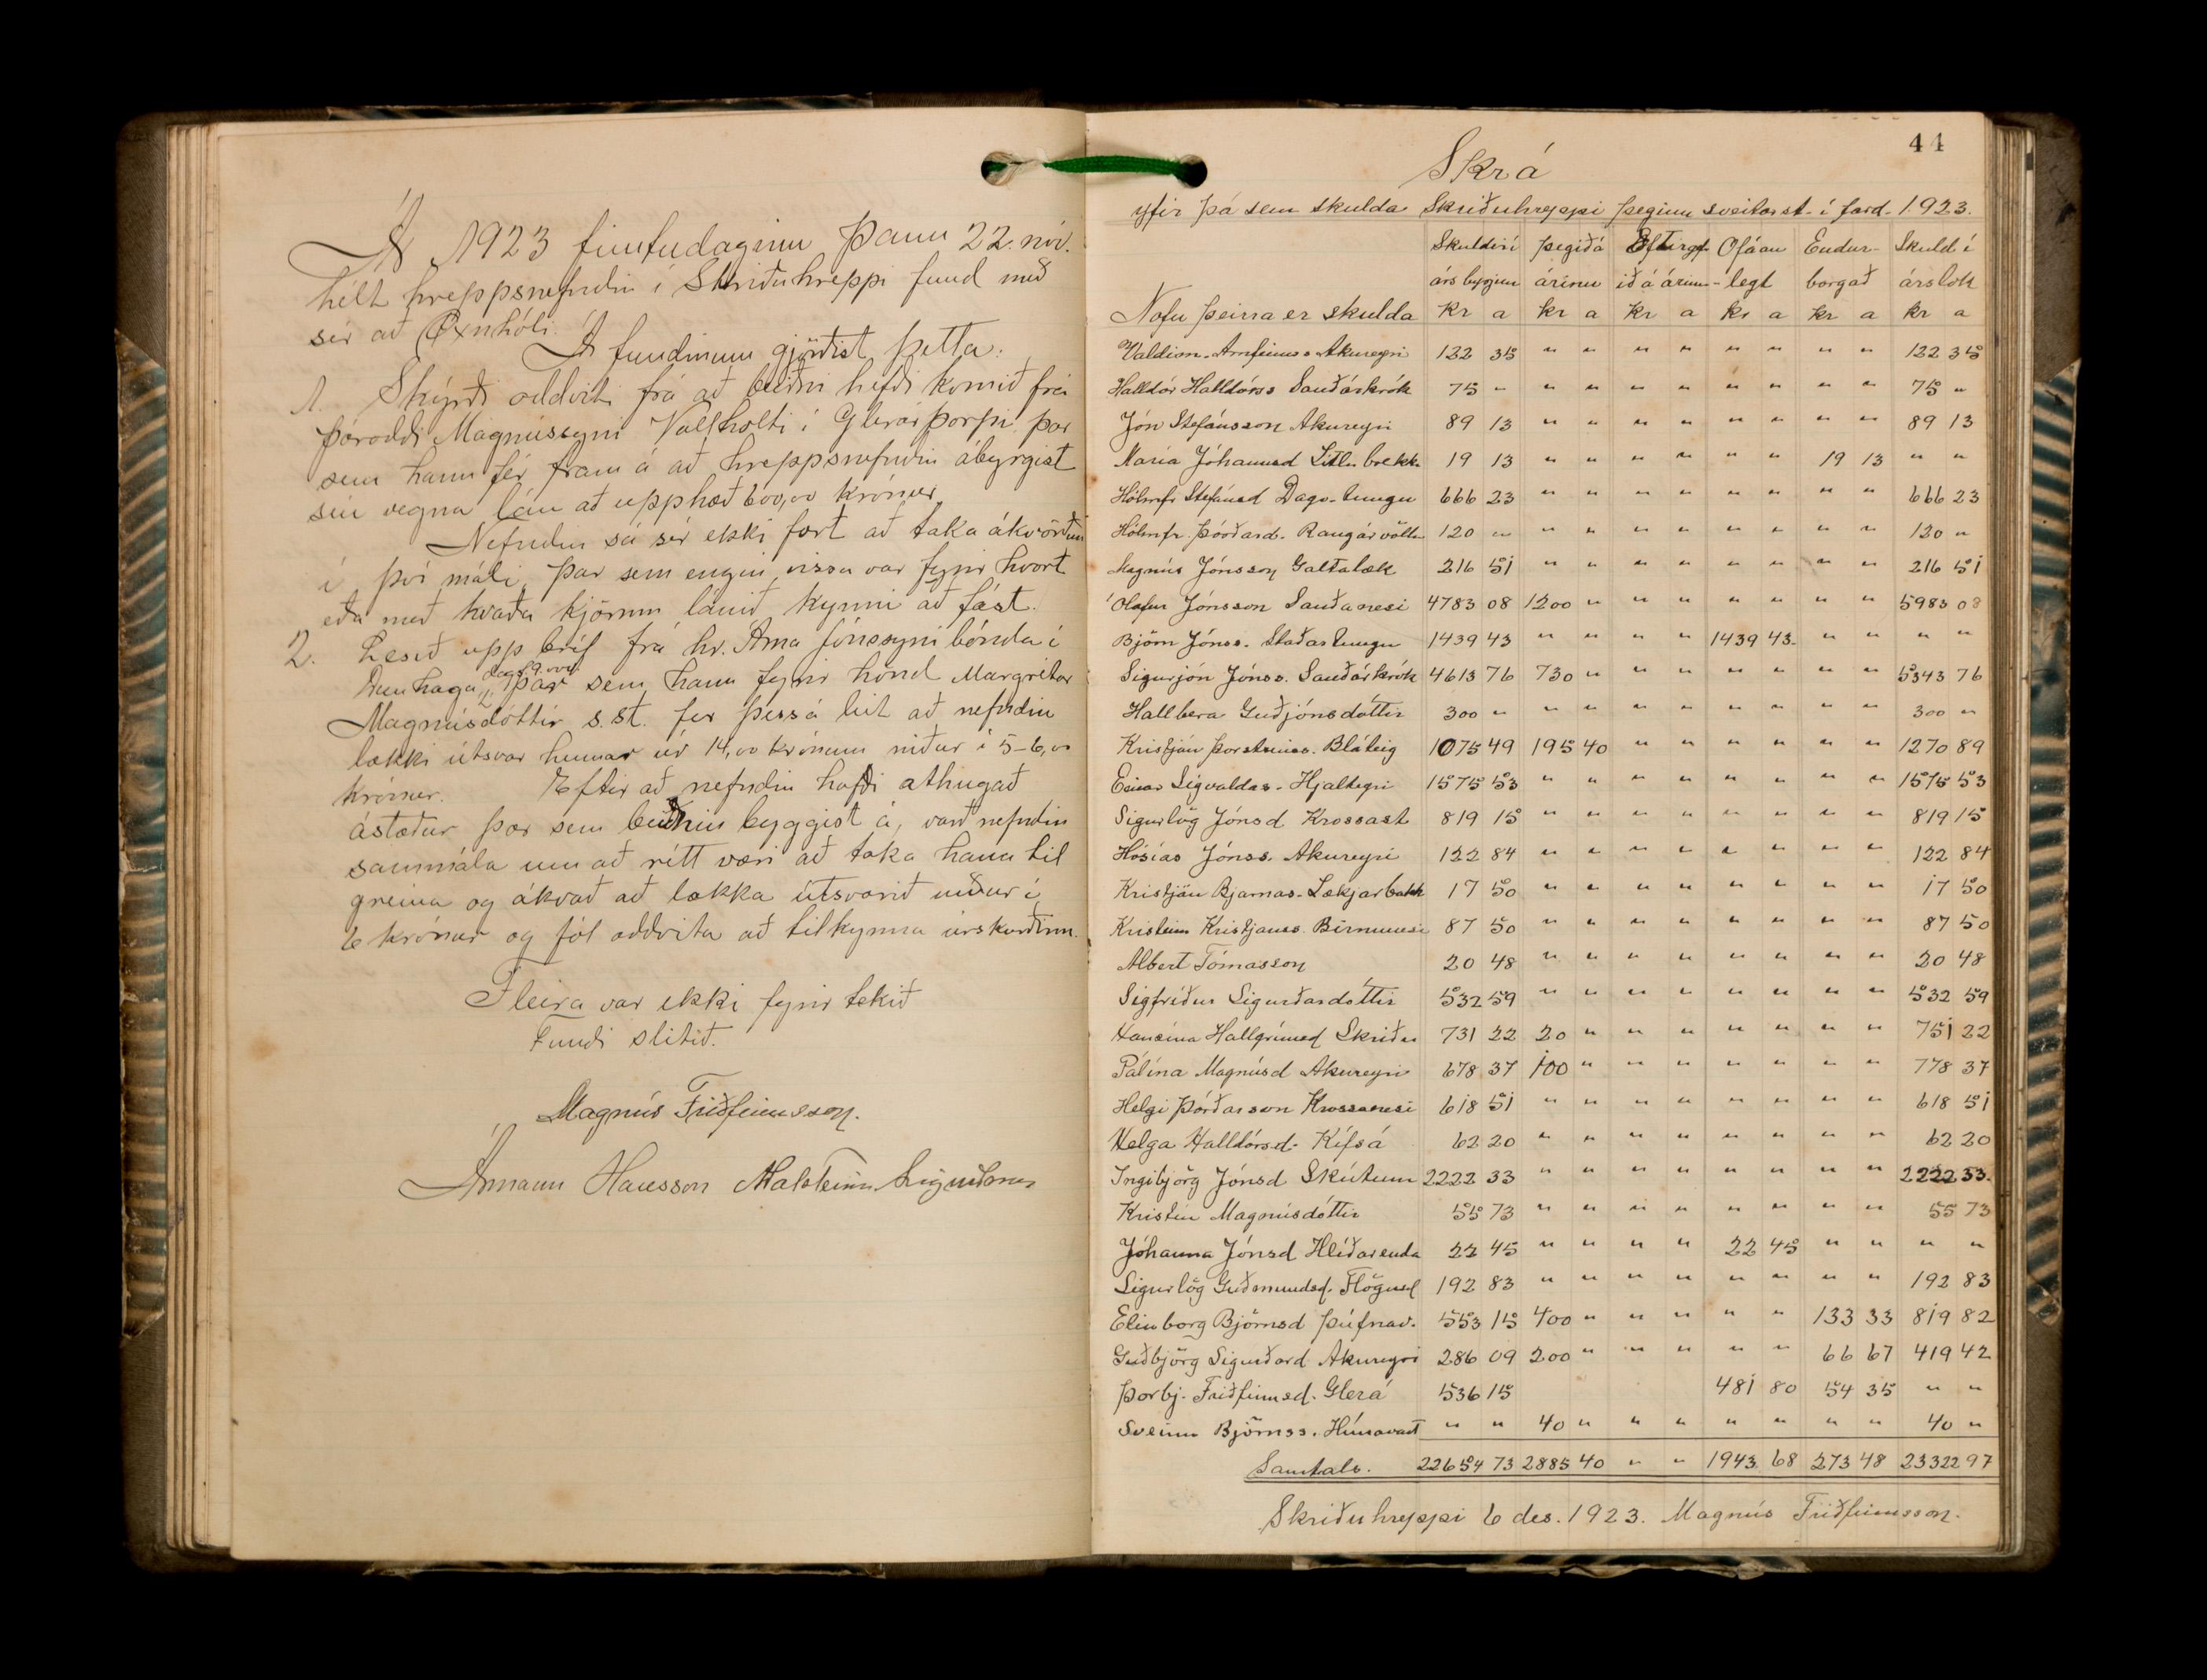 Ár 1923 fimtudaginn þann 22. nóv.
hélt hreppsnefndin í Skriðuhreppi fund með
sér að Öxnhóli.
Á fundinum gjörðist þetta:
1. Skýrði oddviti frá að beiðni hefði komið frá
Þóroddi Magnússyni Vallholti í Glerárþorpi þar
sem hann fer fram á að hreppsnefndin ábyrgist
sín vegna lán að upphæð 600,00 krónur.
Nefndin sá sér ekki fært að taka ákvörðun
í því máli, þar sem engin vissa var fyrir hvort
eða með hvaða kjörum lánið kynni að fást.
2. Lesið upp bréf frá hr. Árna Jónssyni bónda í
dags 9. nóv.
Dunhaga, þar sem hann fyrir hönd Margrétar
Magnúsdóttir s.st. fer þess á leit að nefndin
lækki útsvar hennar úr 14,00 krónum niður í 5-6,00
krónur. Eftir að nefndin hafði athugað
ástæður þær sem beiðnin byggist á, varð nefndin
sammála um að rétt væri að taka hana til
greina og ákvað að lækka útsvarið niður í
6 krónur og fól oddvita að tilkynna úrskurðinn.
Fleira var ekki fyrir tekið
Fundi slitið.
Magnús Friðfinnsson.
Ármann Hansson Aðalsteinn Sigurðsson
44
Skrá
yfir þá sem skulda Skriðuhreppi þeginn sveitarst. í fard. 1923.
Skuldir í þegið á Eftirgf Ofáan Endur- Skuld í
árs byrjun árinu ið á árinu -legt borgað árslok
Nöfn þeirra er skulda Kr a kr a kr a kr a kr a kr a
Valdim. Arnfinnss Akureyri 122 35 " " " " " " " " 122 35
Halldór Halldórss Sauðárkrók 75 " " " " " " " " " 75 "
Jón Stefánsson Akureyri 89 13 " " " " " " " " 89 13
María Jóhannsd Litlu brekk. 19 13 " " " " " " 19 13 " "
Hólmfr Stefánsd Dags-tungu 666 23 " " " " " " " " 666 23
Hólmfr. Þórðard. Rangárvöllu 120 " " " " " " " " " 120 "
Magnús Jónsson Galtalæk 216 51 " " " " " " " " 216 51
Ólafur Jónsson Sauðanesi 4783 08 1200 " " " " " " " 5983 08
Björn Jónss. Staðartungu 1439 43 " " " " 1439 43. " " " "
Sigurjón Jónss. Sauðárkrók 4613 76 730 " " " " " " " 5343 76
Hallbera Guðjónsdóttir 300 " " " " " " " " " 300 "
Kristján Þorsteinss. Bláteig 1075 49 195 40 " " " " " " 1270 89
Einar Sigvaldas. Hjalteyri 1575 53 " " " " " " " " 1575 53
Sigurlög Jónsd Krossast 819 15 " " " " " " " " 819 15
Hósías Jónss. Akureyri 122 84 " " " " " " " " 122 84
Kristján Bjarnas. Lækjarbakk 17 50 " " " " " " " " 17 50
Kristinn Kristjánss. Birnunesi 87 50 " " " " " " " " 87 50
Albert Tómasson 20 48 " " " " " " " " 20 48
Sigfríður Sigurðardóttir 532 59 " " " " " " " " 532 59
Hansína Hallgrímsd Skriðu 731 22 20 " " " " " " " 751 22
Pálína Magnúsd Akureyri 678 37 100 " " " " " " " 778 37
Helgi Þórðarson Krossanesi 618 51 " " " " " " " " 618 51
Helga Halldórsd. Kífsá 62 20 " " " " " " " " 62 20
Ingibjörg Jónsd Skútum 2222 33 " " " " " " " " 2222 33.
Kristín Magnúsdóttir 55 73 " " " " " " " " 55 73
Jóhanna Jónsd Hlíðarenda 22 45 " " " " 22 45 " " " "
Sigurlög Guðmundsd. Flögusel 192 83 " " " " " " " " 192 83
Elinborg Björnsd Þúfnav. 553 15 400 " " " " " 133 33 819 82
Guðbjörg Sigurðard Akureyri 286 09 200 " " " " " 66 67 419 42
Þorbj. Friðfinnsd. Glerá 536 15 481 80 54 35 " "
Sveinn Björnss. Húnavast " " 40 " " " " " " " 40 "
Samtals. 22654 73 2885 40 " " 1943 68 273 48 23322 97
Skriðuhreppi 6 des. 1923. Magnús Friðfinnsson.